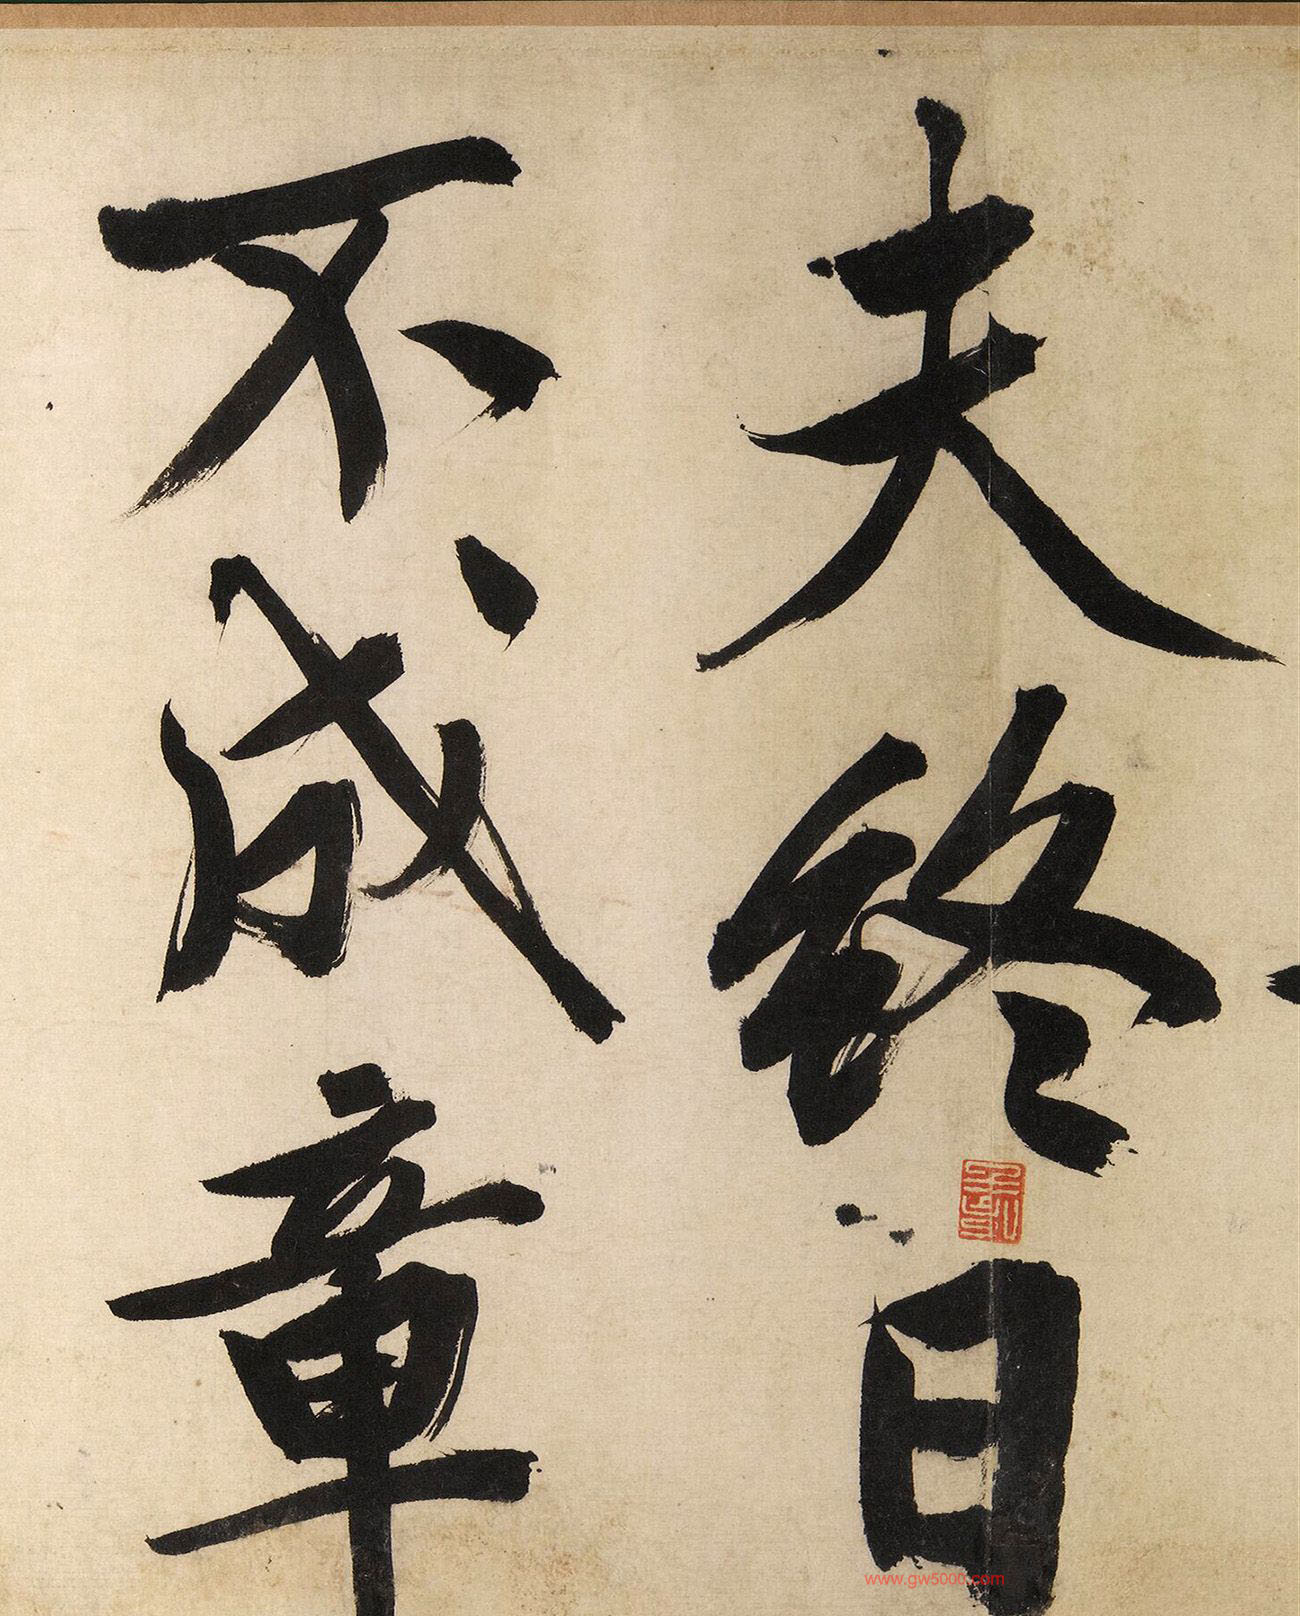 夫終日
不成章
www.gw5000.com